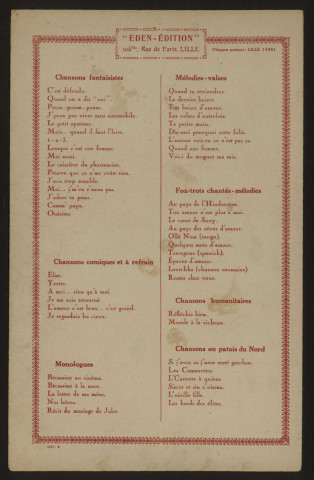 "EDEN-ÉDITION"
Rue de Paris, LILLE
Chansons fantaisistes
C'est défendu.
Quand on a dit "oui".
Poum-poum-poum.
J'peux pas vivre sans automobile.
Le petit système.
Mais... quand il faut l'faire.
1-2-3.
Lorsque c'est une femme.
Moi aussi.
La caissière du pharmacien.
Pourvu que ça n'me coûte rien.
J'suis trop sensible.
Moi... j'm'en n'aome pas.
J'adore ta peau.
Comm' papa.
Obéisine
Chansons comiques et à refrain
Elise.
Yvette.
A moi... rien qu'à moi.
Je me suis retourné
L'amour c'est beau... c'est grand.
Je regardais les cieux.
Monologues
Bécassine au cinéma.
Bécassine à la noce.
La lettre de ma mère.
Nos héros.
Récit du mariage de Jules.
Mélodies-valses
Quand tu reviendras.
Le dernier baiser.
Ton baiser d'amour.
Les valses d'autrefois.
Ta petite main.
Dis-moi pourquoi cette folie.
L'amour vois-tu ce n'est pas ça
Quand une femme.
Voici du muguet ma mie.
Fox-trots chantés-mélodies
Au pays de l'Hindoustan.
Ton amour n'est plus à moi.
Le cœur de Suzy.
Au pays des rêves d'amour.
Ollé Nina (tango).
Quelques mots d'amour.
Tarragone (spanish).
Epaves d'amour.
Loutchka (chanson roumaine)
Restez chez vous.
Chansons humanitaires
Réfléchis bien.
Morale à la richesse.
Chansons en patois du Nord
Si j'avos su j'aros resté garchon.
Les Commerres.
L'Carrette à quiens
Sucre et sin s'cienne.
L'vieille fille.
Les bords des élins.